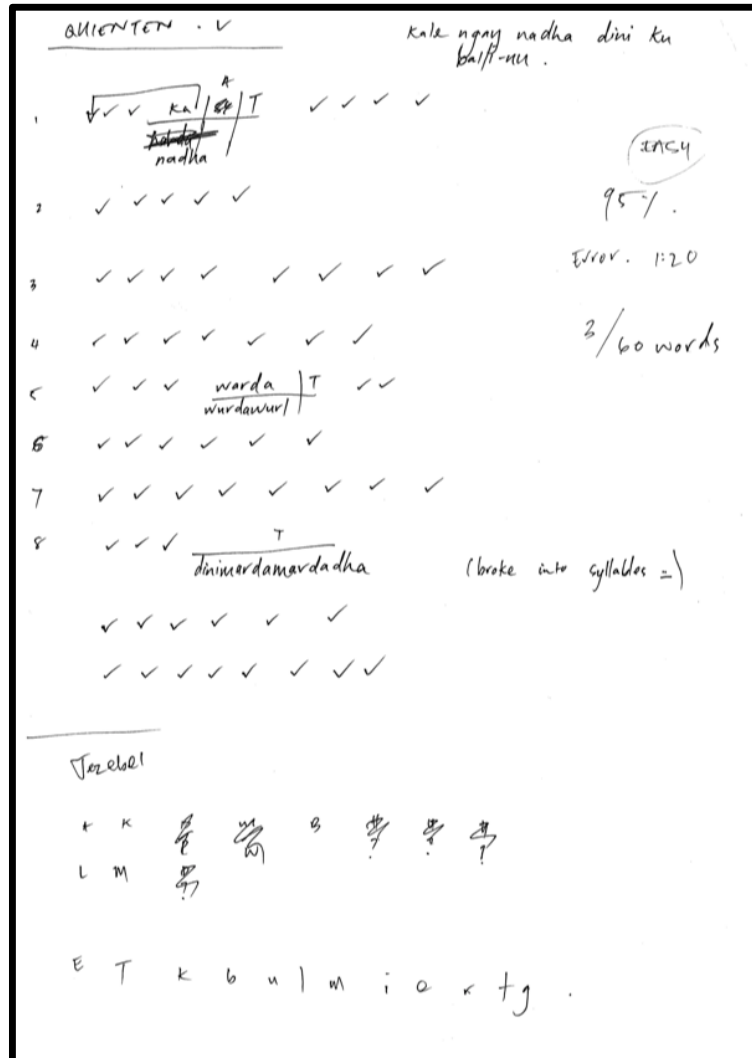 QUIENTEN . V
Kale ngay nadha dini ku
balji-nu .
1 ✓ ✓ ✓ Ka | A | T ✓ ✓ ✓ ✓
nadha
EASY
2 ✓ ✓ ✓ ✓ ✓
95%.
Error. 1:20
3 ✓ ✓ ✓ ✓ ✓ ✓ ✓ ✓
4 ✓ ✓ ✓ ✓ ✓ ✓ ✓
3/60 words
5 ✓ ✓ ✓ warda | T ✓ ✓
wurdawurl
6 ✓ ✓ ✓ ✓ ✓ ✓
7 ✓ ✓ ✓ ✓ ✓ ✓ ✓ ✓
8 ✓ ✓ ✓ T
dinimardamardadha (broke into syllables =)
✓ ✓ ✓ ✓ ✓ ✓
✓ ✓ ✓ ✓ ✓ ✓ ✓ ✓
Jezebel
K B
L M
E T k b u l m i o x t g .